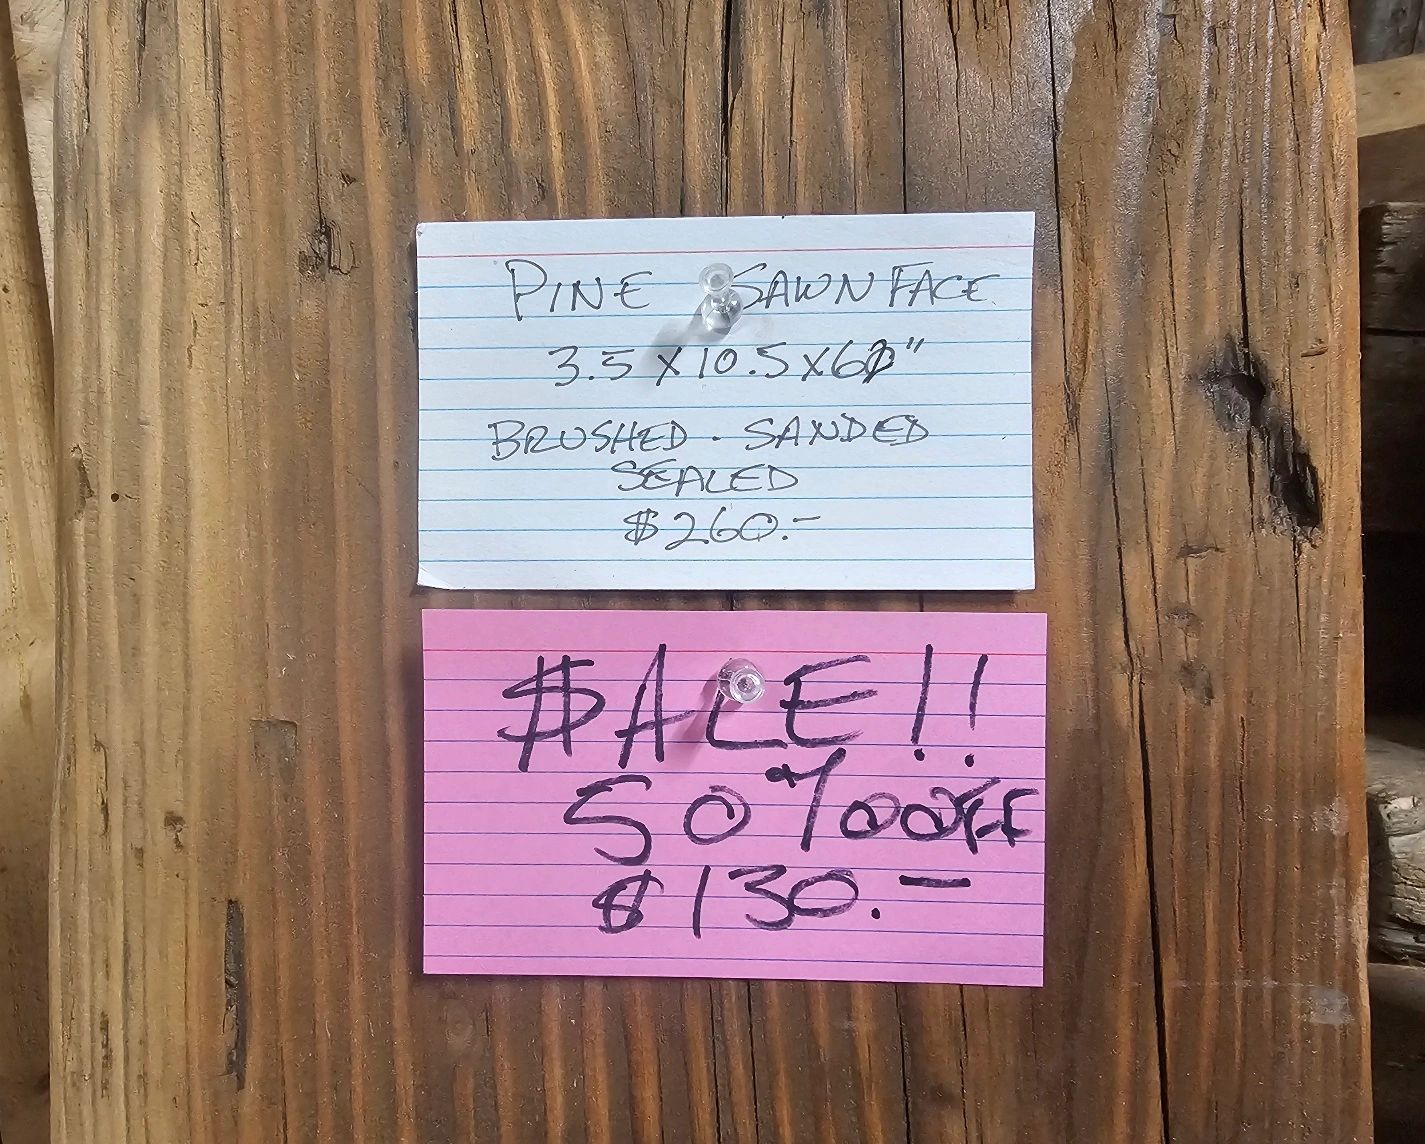 PINE SAWN FACE
3.5 X 10.5 X 60"
BRUSHED - SANDED
SEALED
$260.-
$ALE!!
50% OFF
$130.-